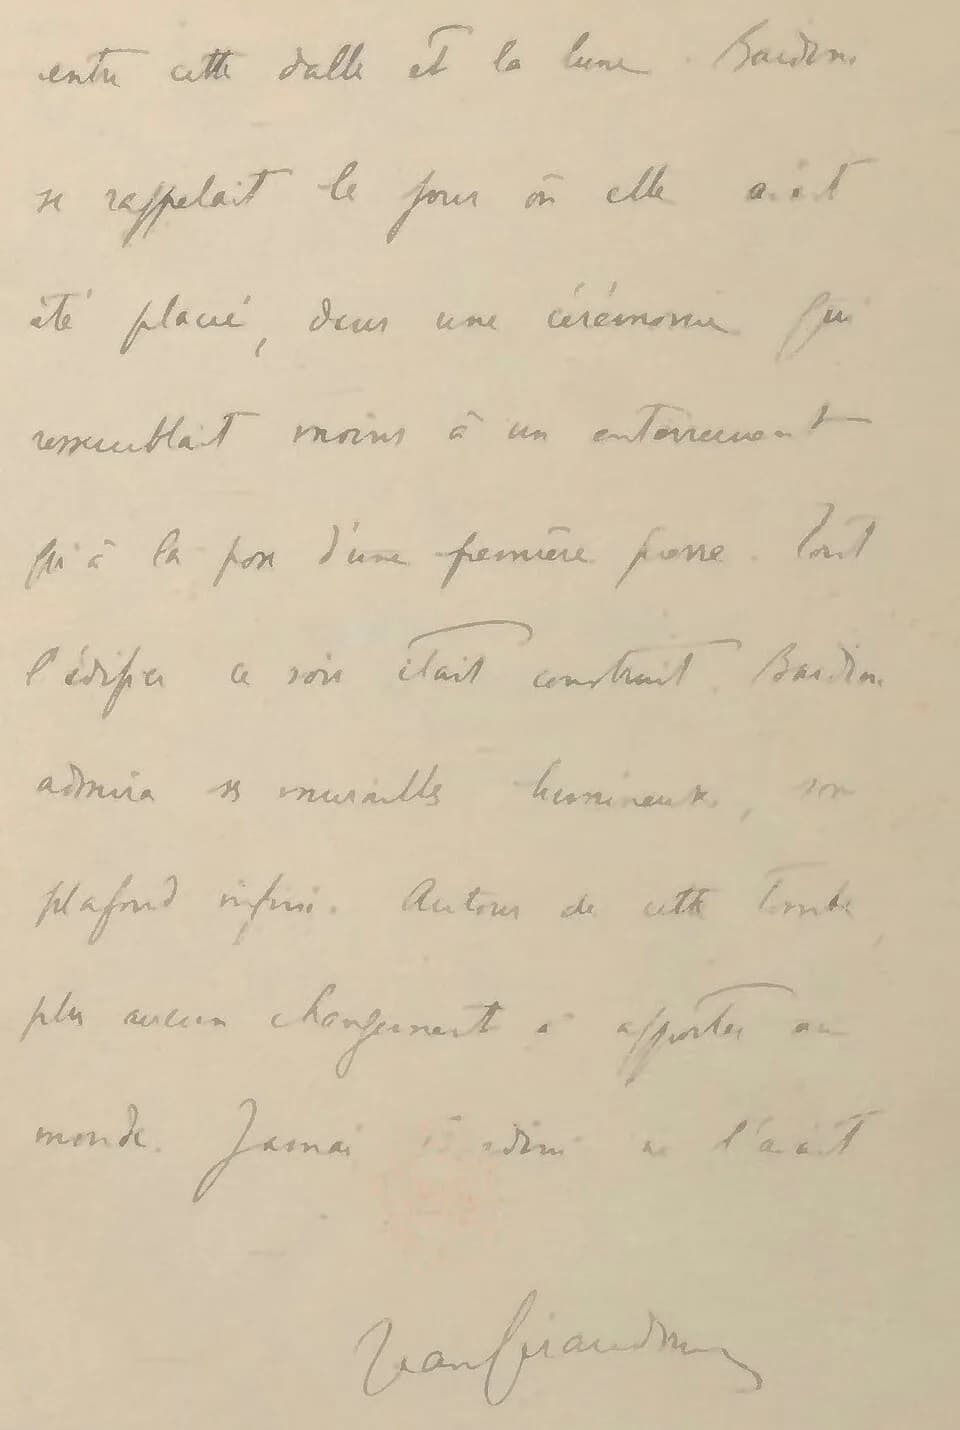 entre cette dalle et la lune. Bardini
se rappelait le jour où elle avait
été placée, dans une cérémonie qui
ressemblait moins à un enterrement
qu'à la pose d'une première pierre. Tout
l'édifice ce soir était construit. Bardini
admira ses murailles lumineuses, son
plafond infini. Autour de cette tombe,
plus aucun changement à apporter au
monde. Jamais Bardini ne l'avait
Jean Giraudoux